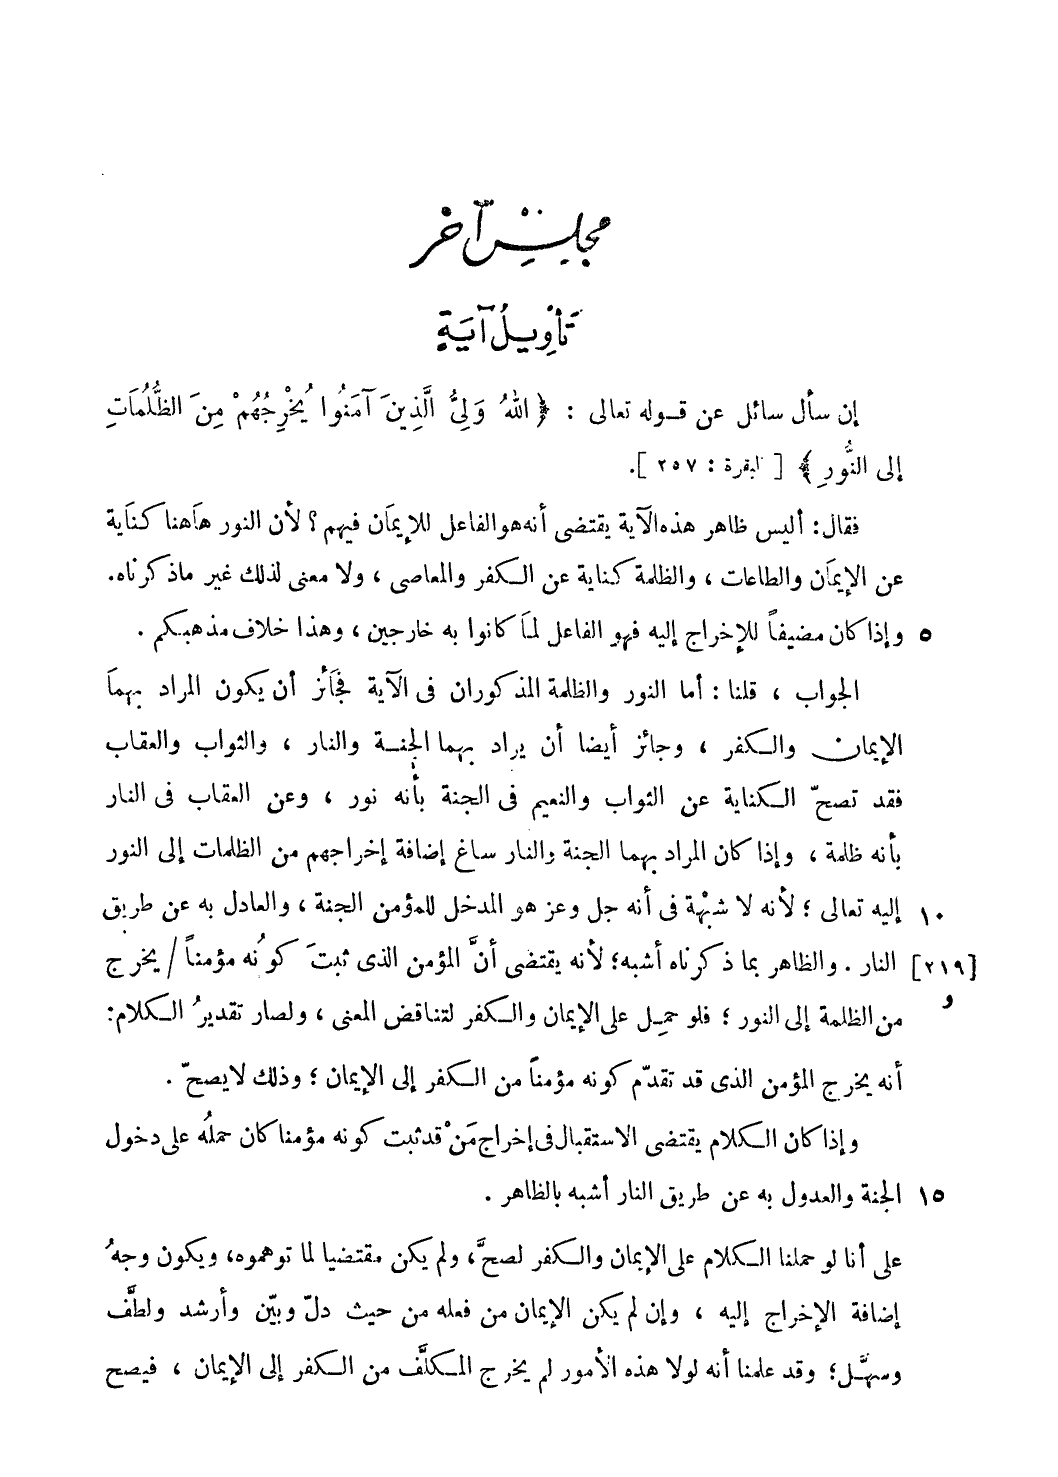 مجلس آخر
تأويل آية
إن سأل سائل عن قوله تعالى : ﴿ اللهُ وَلِيُّ الَّذِينَ آمَنُوا يُخْرِجُهُمْ مِنَ الظُّلُمَاتِ
إلى النُّورِ ﴾ [ البقرة : ٢٥٧ ].
فقال: أليس ظاهر هذه الآية يقتضى أنه هو الفاعل للإيمان فيهم ؟ لأن النور هاهنا كناية
عن الإيمان والطاعات ، والظلمة كناية عن الكفر والمعاصى ، ولا معنى لذلك غير ما ذكرناه.
٥ وإذا كان مضيفاً للإخراج إليه فهو الفاعل لما كانوا به خارجين ، وهذا خلاف مذهبكم .
الجواب ، قلنا : أما النور والظلمة المذكوران فى الآية فجائز أن يكون المراد بهما
الإيمان والكفر ، وجائز أيضا أن يراد بهما الجنة والنار ، والثواب والعقاب
فقد تصحّ الكناية عن الثواب والنعيم فى الجنة بأنه نور ، وعن العقاب فى النار
بأنه ظلمة ، وإذا كان المراد بهما الجنة والنار ساغ إضافة إخراجهم من الظلمات إلى النور
١٠ إليه تعالى ؛ لأنه لا شبْهة فى أنه جل وعز هو المدخل للمؤمن الجنة ، والعادل به عن طريق
[٢١٩] النار . والظاهر بما ذكرناه أشبه؛ لأنه يقتضى أنَّ المؤمن الذى ثبتَ كونُه مؤمناً / يخرج
و
من الظلمة إلى النور ؛ فلو حمِل على الإيمان والكفر لتناقض المعنى ، ولصار تقديرُ الكلام:
أنه يخرج المؤمن الذى قد تقدّم كونه مؤمناً من الكفر إلى الإيمان ؛ وذلك لا يصحّ .
وإذا كان الكلام يقتضى الاستقبال فى إخراج مَنْ قد ثبت كونه مؤمنا كان حملُه على دخول
١٥ الجنة والعدول به عن طريق النار أشبه بالظاهر .
على أنا لو حملنا الكلام على الإيمان والكفر لصحَّ، ولم يكن مقتضيا لما توهموه، ويكون وجهُ
إضافة الإخراج إليه ، وإن لم يكن الإيمان من فعله من حيث دلّ وبيّن وأرشد ولطَّف
وسهَّل؛ وقد علمنا أنه لولا هذه الأمور لم يخرج المكلَّف من الكفر إلى الإيمان ، فيصح